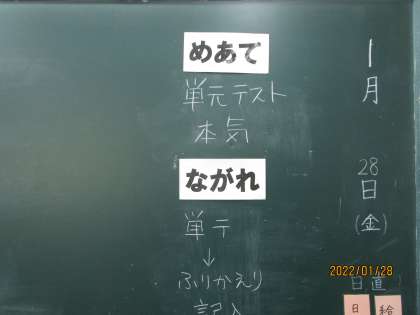 1月28日(金)
日直
日 給
めあて
単元テスト
本気
ながれ
単テ
↓
ふりかえり
記入
2022/01/28